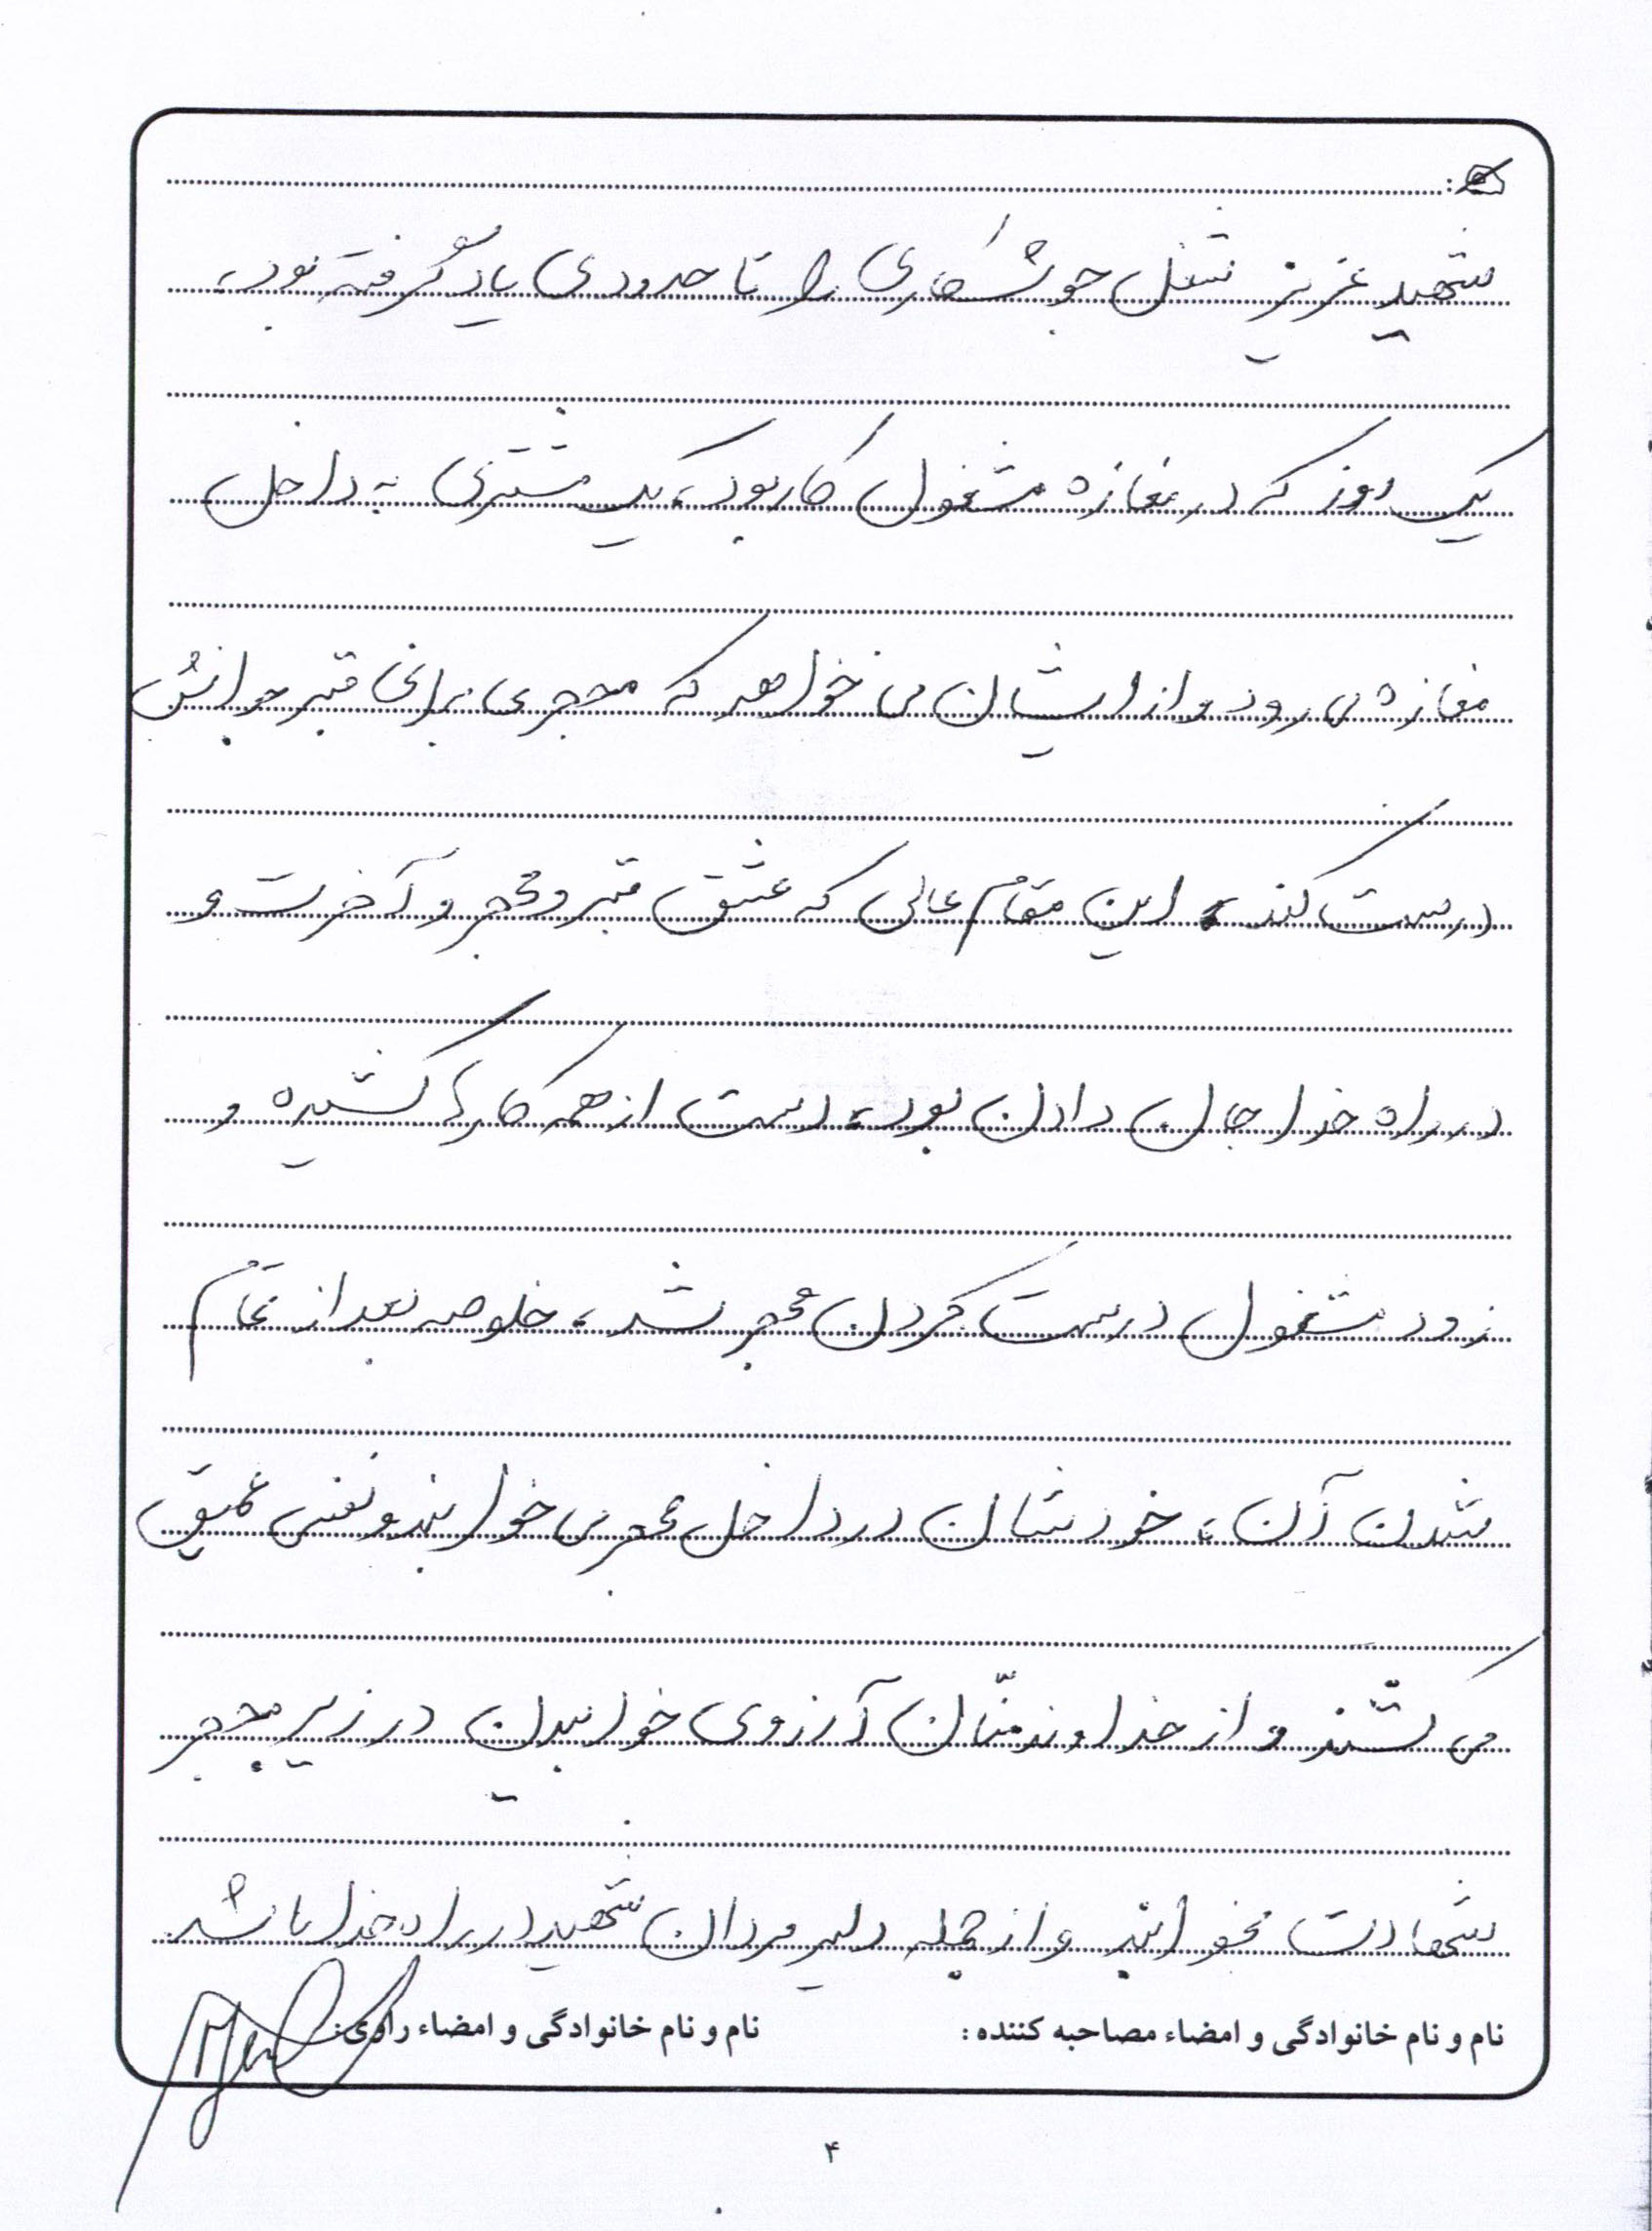 شهید عزیز شغل جوشکاری را تا حدودی یاد گرفته بود،
یک روز که در مغازه مشغول کار بود، یک مشتری به داخل
مغازه می رود و از ایشان می خواهد که محجری برای قبر جوانش
درست کند، این مقام عالی که عشق قبر و محجر و آخرت و
در راه خدا جان دادن بود، دست از همه کارها کشیده و
زود مشغول درست کردن محجر شد، خلاصه بعد از تمام
شدن آن، خودشان در داخل محجر می خوابند و نفسی عمیق
می کشند و از خداوند منّان آرزوی خوابیدن در زیر محجر
شهادت بخوابند و از جمله دلیر مردان شهید در راه خدا باشد.
نام و نام خانوادگی و امضاء مصاحبه کننده: نام و نام خانوادگی و امضاء راوی:
۴